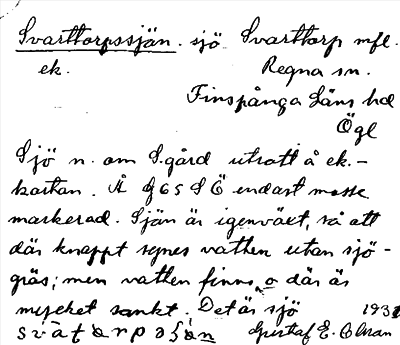 Svarttorpssjän. sjö Svarttorp mfl.
ek. Regna sn.
Finspånga Läns hd
Ögl
Sjö n. om S.gård utsatt å ek.-
kartan. Å G65 SÖ endast mosse
markerad. Sjän är igenväxt, så att
där knappt synes vatten utan sjö-
gräs; men vatten finns o där är
mycket sankt. Det är sjö 1931
Gustaf E. Olsson